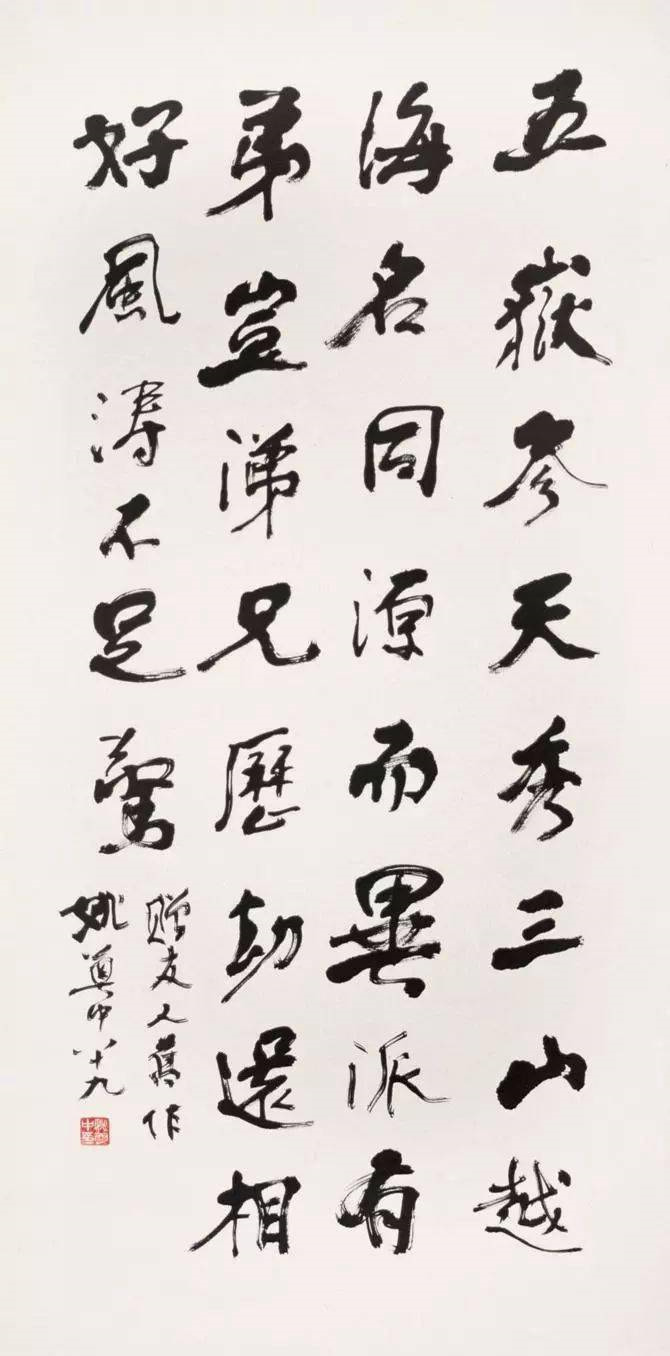 五嶽参天秀三山越
海名同源而異派有
弟豈無兄歷劫還相
好風濤不足驚
贈友人舊作
姚奠中八十九